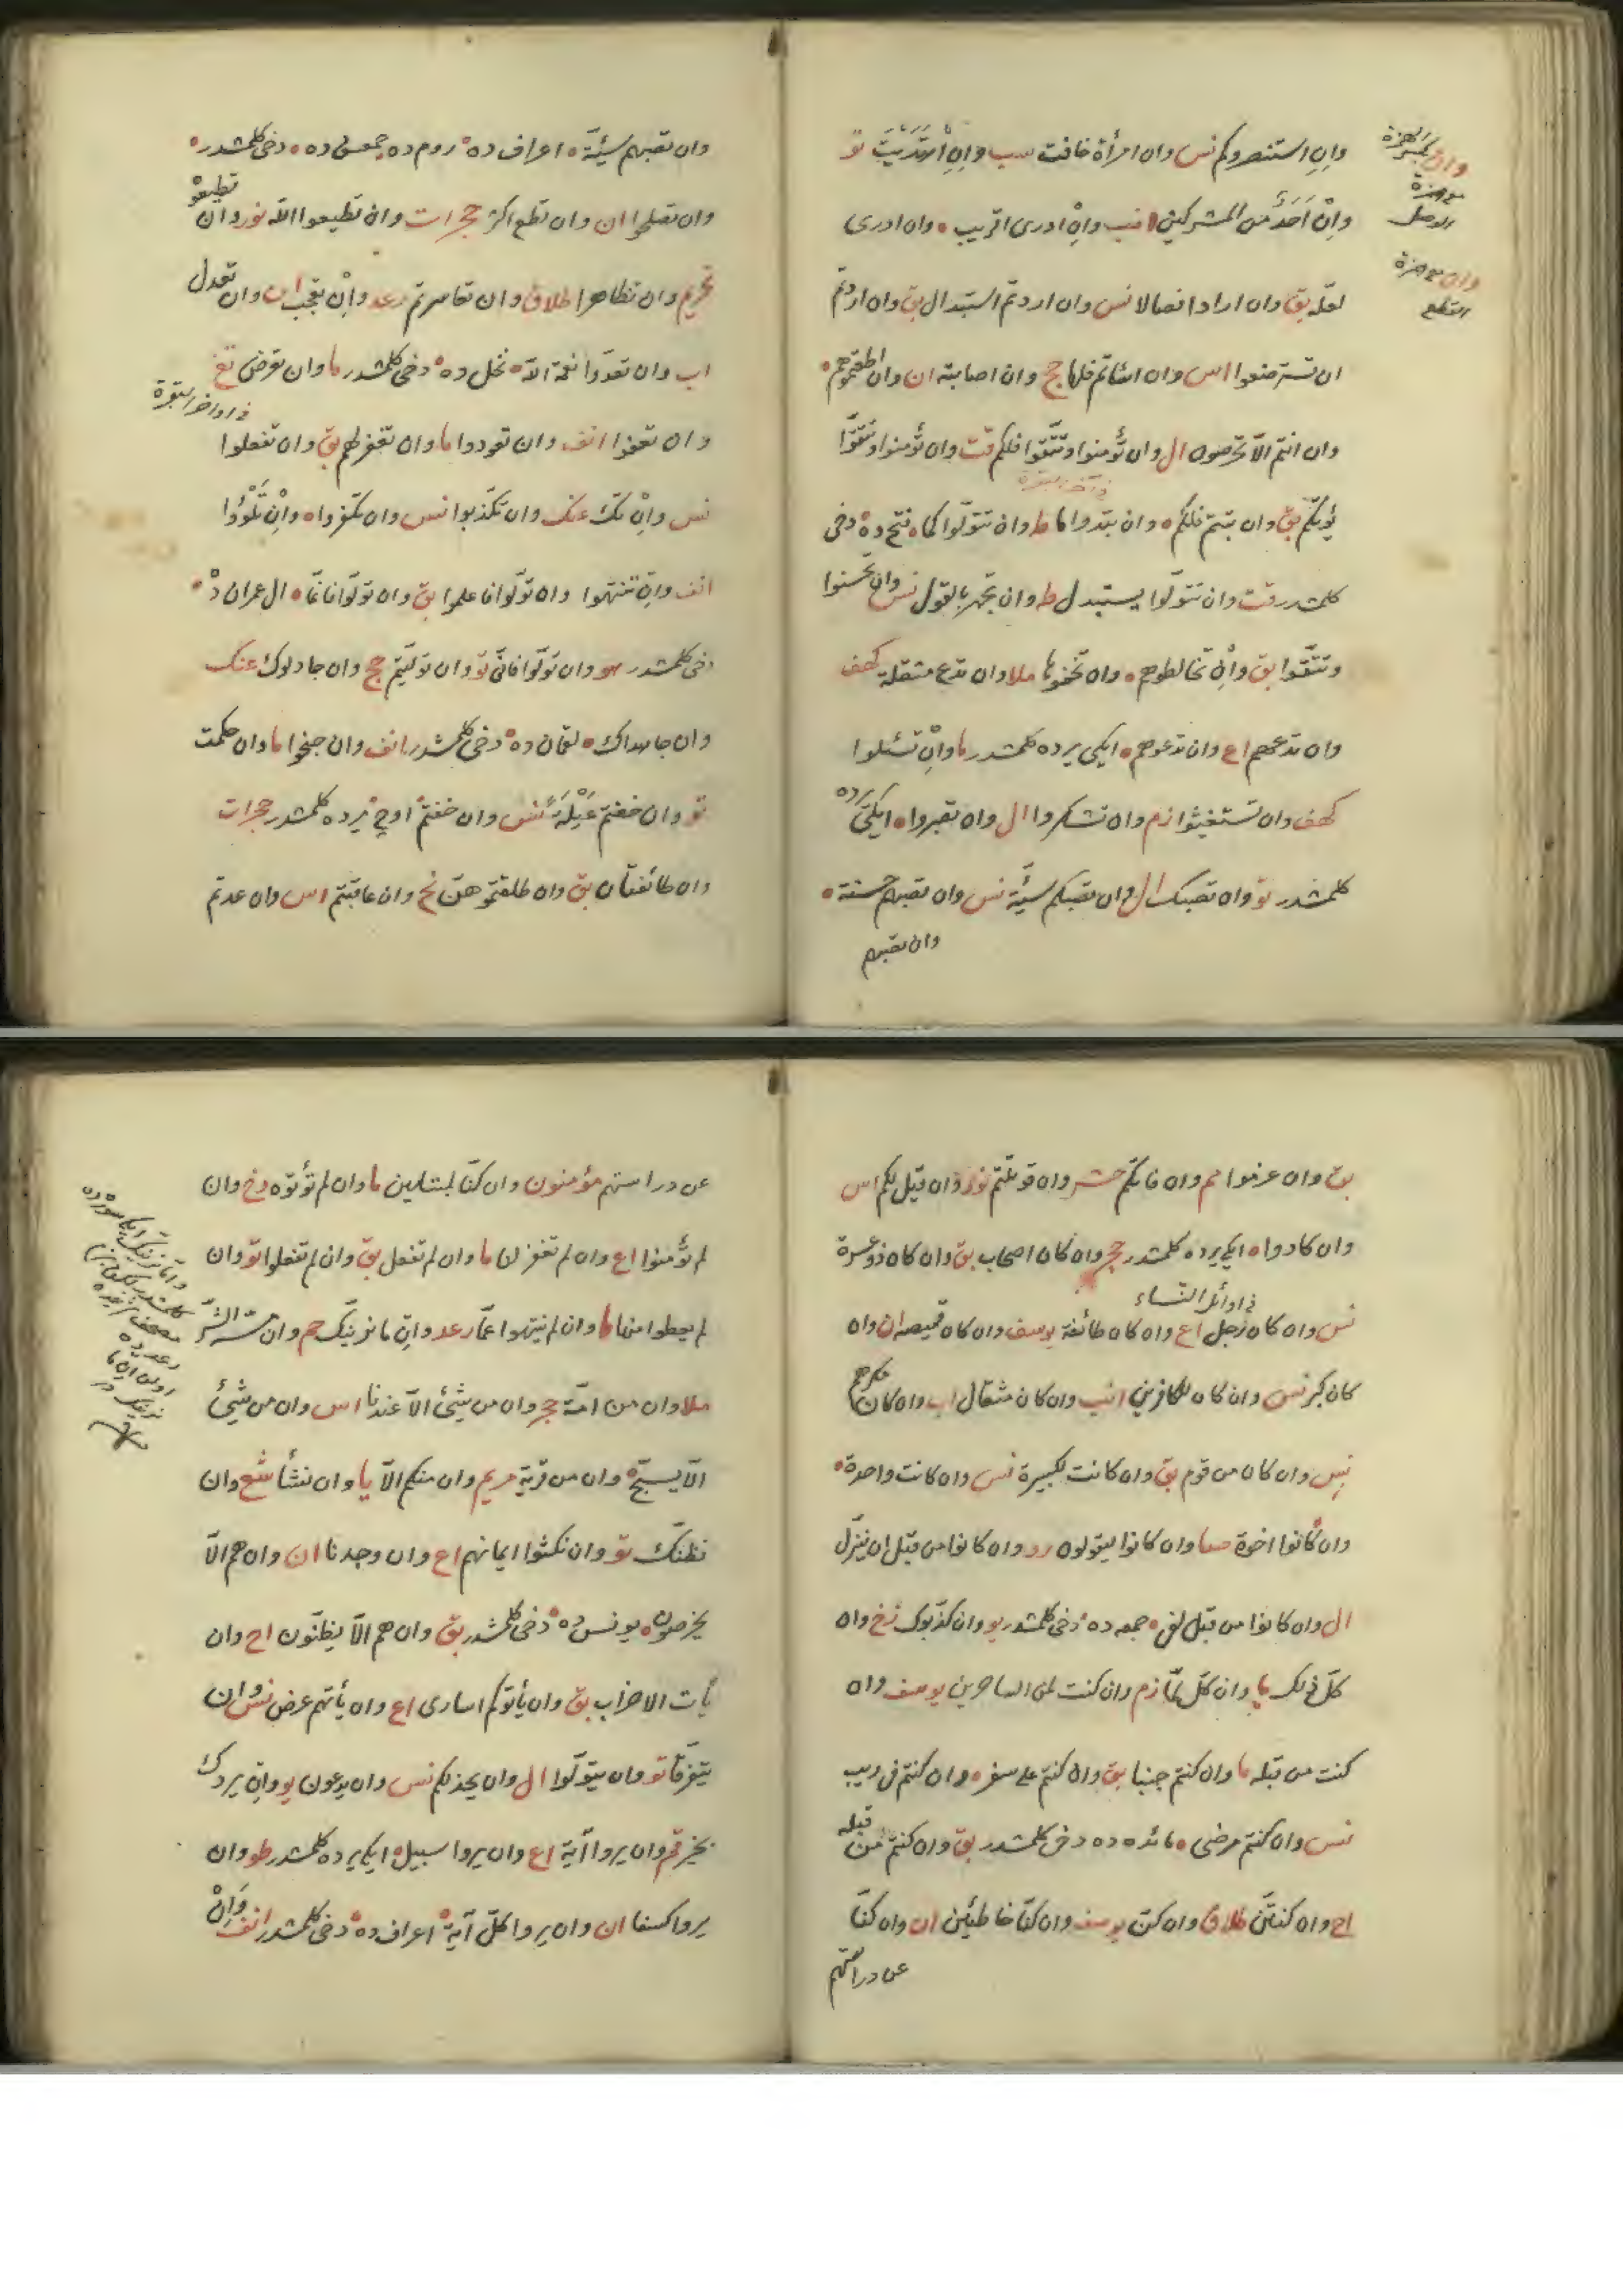 وان بكسر الهمزة
مع همزة
الوصل
وان مع همزة
القطع
وانِ استنصروكم نس وان امرأة خافت سب وانِ ارتبتم تو
وانْ اَحَدٌ من المشركين انب وانْ ادرى اقريب ه وان ادرى
لعله بق وان ارادا فصالا نس وان اردتم استبدال بق وان اردتم
ان تسترضعوا اس وان اسأتم فلها حج وان اصابته ان وان اطعتموهم ه
وان انتم الّا تخرصون ال وان تؤمنوا وتتّقوا فلكم قت وان تؤمنوا وتتّقوا
يؤتكم بق وان تبتم فلكم ه وان تبدوا ما ط وان تتولّوا كما ه فتح ده دخى
كلمشدر قت وان تتولّوا يستبدل ط وان تجهر بالقول نس وان تحسنوا
وتتّقوا بق وانْ تخالطوهم ه وان تخفوها ملا وان تدع مثقلة كهف
وان تدعهم اع وان تدعوهم ه ايكى يرده كلمشدر ما وانْ تسئلوا
كهف وان تستغيثوا زم وان تشكروا ال وان تصبروا ه ايكى يرده
كلمشدر تو وان تصبك ال وان تصبكم سيّئة نس وان تصبهم حسنة ه
وان تصبهم
وان تصبهم سيّئة ه اعراف ده روم ده جمعى ده ه دخى كلمشدر ه
وان تصلحوا ان وان تطع اكثر حجرات وان تطيعوا الله نور وان تطيعوه
تحريم وان تظاهرا طلاق وان تعاسرتم رعد وانْ تعجب ان وان تعدل
اب وان تعدّوا نعمة الله ه نحل ده دخى كلمشدر ما وان تعرض تغ
فى اواخر البقرة
وان تعفوا انف وان تعودوا ما وان تغفر لهم بق وان تفعلوا
نس وانْ تك عنك وان تكذبوا نس وان تكفروا ه وانْ تَلْوُوا
انف وان تنتهوا وان تولّوا فاعلموا بق وان تولّوا فانّما ه ال عمران ده
دخى كلمشدر هو وان تولّوا فانّى تو وان تولّيتم حج وان جادلوك عنك
وان جاهداك ه لقمان ده دخى كلمشدر انف وان جنحوا ما وان حكمت
تو وان خفتم عَيْلَةً نس وان خفتم اوچ يرده كلمشدر حجرات
وان طائفتان بق وان طلقتموهن نح وان عاقبتم اس وان عدتم
بق وان عزموا مم وان فاتكم حشر وان قوتلتم نور وان قيل لكم اس
وان كادوا ه ايكى يرده كلمشدر حجر وان كان اصحاب بق وان كان ذو عسرة
فى اوائل النساء
نس وان كان رجل اع وان كان طائفة يوسف وان كان قميصه ان وان
كان كبر نس وان كان للكافرين انب وان كان مثقال اب وان كان مكرهم
نس وان كان من قوم بق وان كانت لكبيرة نس وان كانت واحدة ه
وان كانوا اخوة صا وان كانوا ليقولون رو وان كانوا من قبل ان ينزّل
ال وان كانوا من قبل لفى ه جمعه ده دخى كلمشدر يو وان كذّبوك زخ وان
كلّ ذلك يا وان كلّ لمّا زم وان كنت لمن الساخرين يوسف وان
كنت من قبله ما وان كنتم جنبا بق وان كنتم على سفر ه وان كنتم فى ريب
نس وان كنتم مرضى ه مائده ده دخى كلمشدر بق وان كنتم من قبله
اح وان كنتنّ طلاق وان كنّ يوسف وان كنّا خاطئين ان وان كنّا
عن دراستهم
عن دراستهم مؤمنون وان كنّا لمبتلين ما وان لم تؤتوه دخ وان
لم تؤمنوا اع وان لم تغفر لنا ما وان لم تفعل بق وان لم تفعلوا تو وان
لم يعطوا منها ما وان لم ينتهوا عمّا رعد وانِ ما نرينّك حم وان مسّه الشّر
ملا وان من امّة حجر وان من شيئ الّا عندنا اس وان من شيئ
الّا يسبّح ه وان من قرية مريم وان منكم الّا يا وان نشأ شع وان
نظنّك تو وان نكثوا ايمانهم اع وان وجدنا ان وان هم الّا
يخرصون ه يونس ده دخى كلمشدر بق وان هم الّا يظنّون اح وان
يأت الاحزاب بق وان يأتوكم اسارى اع وان يأتهم عرض نس وان
يتفرّقا تو وان يتولّوا ال وان يخذلكم نس وان يدعون يو وان يردك
بخير قم وان يروا آية اع وان يروا سبيل ه ايكى يرده كلمشدر طو وان
يروا كسفا ان وان يروا كلّ آية اعراف ده دخى كلمشدر انف وَاِنْ